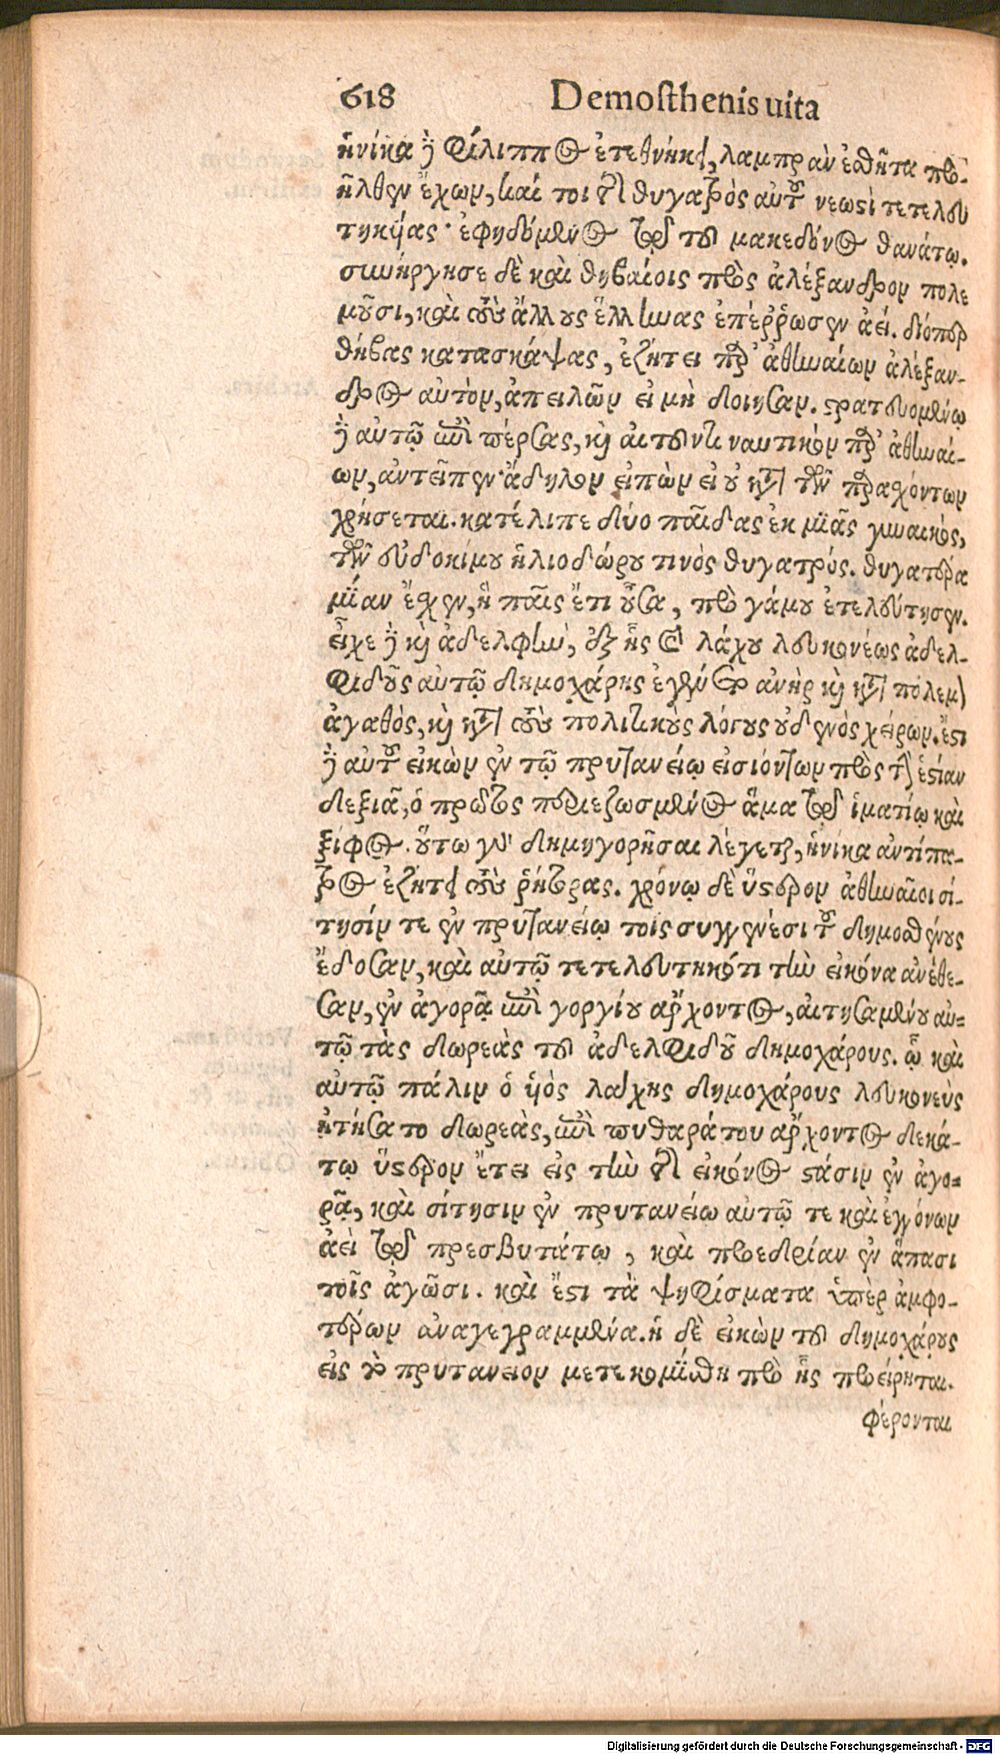 618 Demosthenis uita
ἡνίκα δὲ Φίλιππος ἐτεθνήκει, λαμπρὰν ἐσθῆτα προ-
ῆλθεν ἔχων, καί τοι τῆς θυγατρὸς αὐτοῦ νεωστὶ τετελευ
τηκυίας· ἐφηδόμενος τῷ τοῦ μακεδόνος θανάτῳ.
συνήργησε δὲ καὶ θηβαίοις πρὸς ἀλέξανδρον πολε
μοῦσι, καὶ τοὺς ἄλλους ἕλληνας ἐπέρῤωσεν ἀεί. διόπερ
θήβας κατασκάψας, ἐζήτει παρ' ἀθηναίων ἀλέξαν-
δρος αὐτὸν, ἀπειλῶν εἰ μὴ δοίησαν. στρατευομένῳ
δὲ αὐτῷ ἐπὶ πέρσας, καὶ αἰτοῦντι ναυτικὸν παρ' ἀθηναί-
ων, ἀντεῖπεν· ἄδηλον εἰπὼν εἰ οὐ κατὰ τῶν παρασχόντων
χρήσεται. κατέλιπε δύο παῖδας ἐκ μιᾶς γυναικός,
τῶν εὐδοκίμου ἡλιοδώρου τινὸς θυγατρός. θυγατέρα
μίαν ἔσχεν, ἣ παῖς ἔτι οὖσα, πρὸ γάμου ἐτελεύτησεν.
εἶχε δὲ καὶ ἀδελφὴν, ἐξ ἧς καὶ λάχου λευκονέως ἀδελ-
φιδοῦς αὐτῷ δημοχάρης ἐγένετο ἀνὴρ καὶ κατὰ πόλεμον
ἀγαθὸς, καὶ κατὰ τοὺς πολιτικοὺς λόγους οὐδενὸς χείρων. ἔστι
δὲ αὐτοῦ εἰκὼν ἐν τῷ πρυτανείῳ εἰσιόντων πρὸς τὴν ἑστίαν
δεξιᾷ, ὁ πρῶτος περιεζωσμένος ἅμα τῷ ἱματίῳ καὶ
ξίφος. οὕτω γὰρ δημηγορῆσαι λέγεται, ἡνίκα ἀντίπα-
τρος ἐζήτει τοὺς ῥήτορας. χρόνῳ δὲ ὕστερον ἀθηναῖοι σί-
τησίν τε ἐν πρυτανείῳ τοῖς συγγενέσι τοῦ δημοσθένους
ἔδοσαν, καὶ αὐτῷ τετελευτηκότι τὴν εἰκόνα ἀνέθε-
σαν, ἐν ἀγορᾷ ἐπὶ γοργίου ἄρχοντος, αἰτησαμένου αὐ-
τῷ τὰς δωρεὰς τοῦ ἀδελφιδοῦ δημοχάρους. ᾧ καὶ
αὐτῷ πάλιν ὁ υἱὸς λάχης δημοχάρους λευκονεὺς
ᾐτήσατο δωρεὰς, ἐπὶ πυθαράτου ἄρχοντος δεκά-
τῳ ὕστερον ἔτει εἰς τὴν τῆς εἰκόνος στάσιν ἐν ἀγο-
ρᾷ, καὶ σίτησιν ἐν πρυτανείω αὐτῷ τε καὶ ἐγγόνων
ἀεὶ τῷ πρεσβυτάτῳ, καὶ προεδρίαν ἐν ἅπασι
τοῖς ἀγῶσι. καὶ ἔστι τὰ ψηφίσματα ὑπὲρ ἀμφο-
τέρων ἀναγεγραμμένα. ἡ δὲ εἰκὼν τοῦ δημοχάρους
εἰς τὸ πρυτανειον μετεκομίσθη πρὸ ἧς προείρηται.
φέρονται
Digitalisierung gefördert durch die Deutsche Forschungsgemeinschaft - DFG